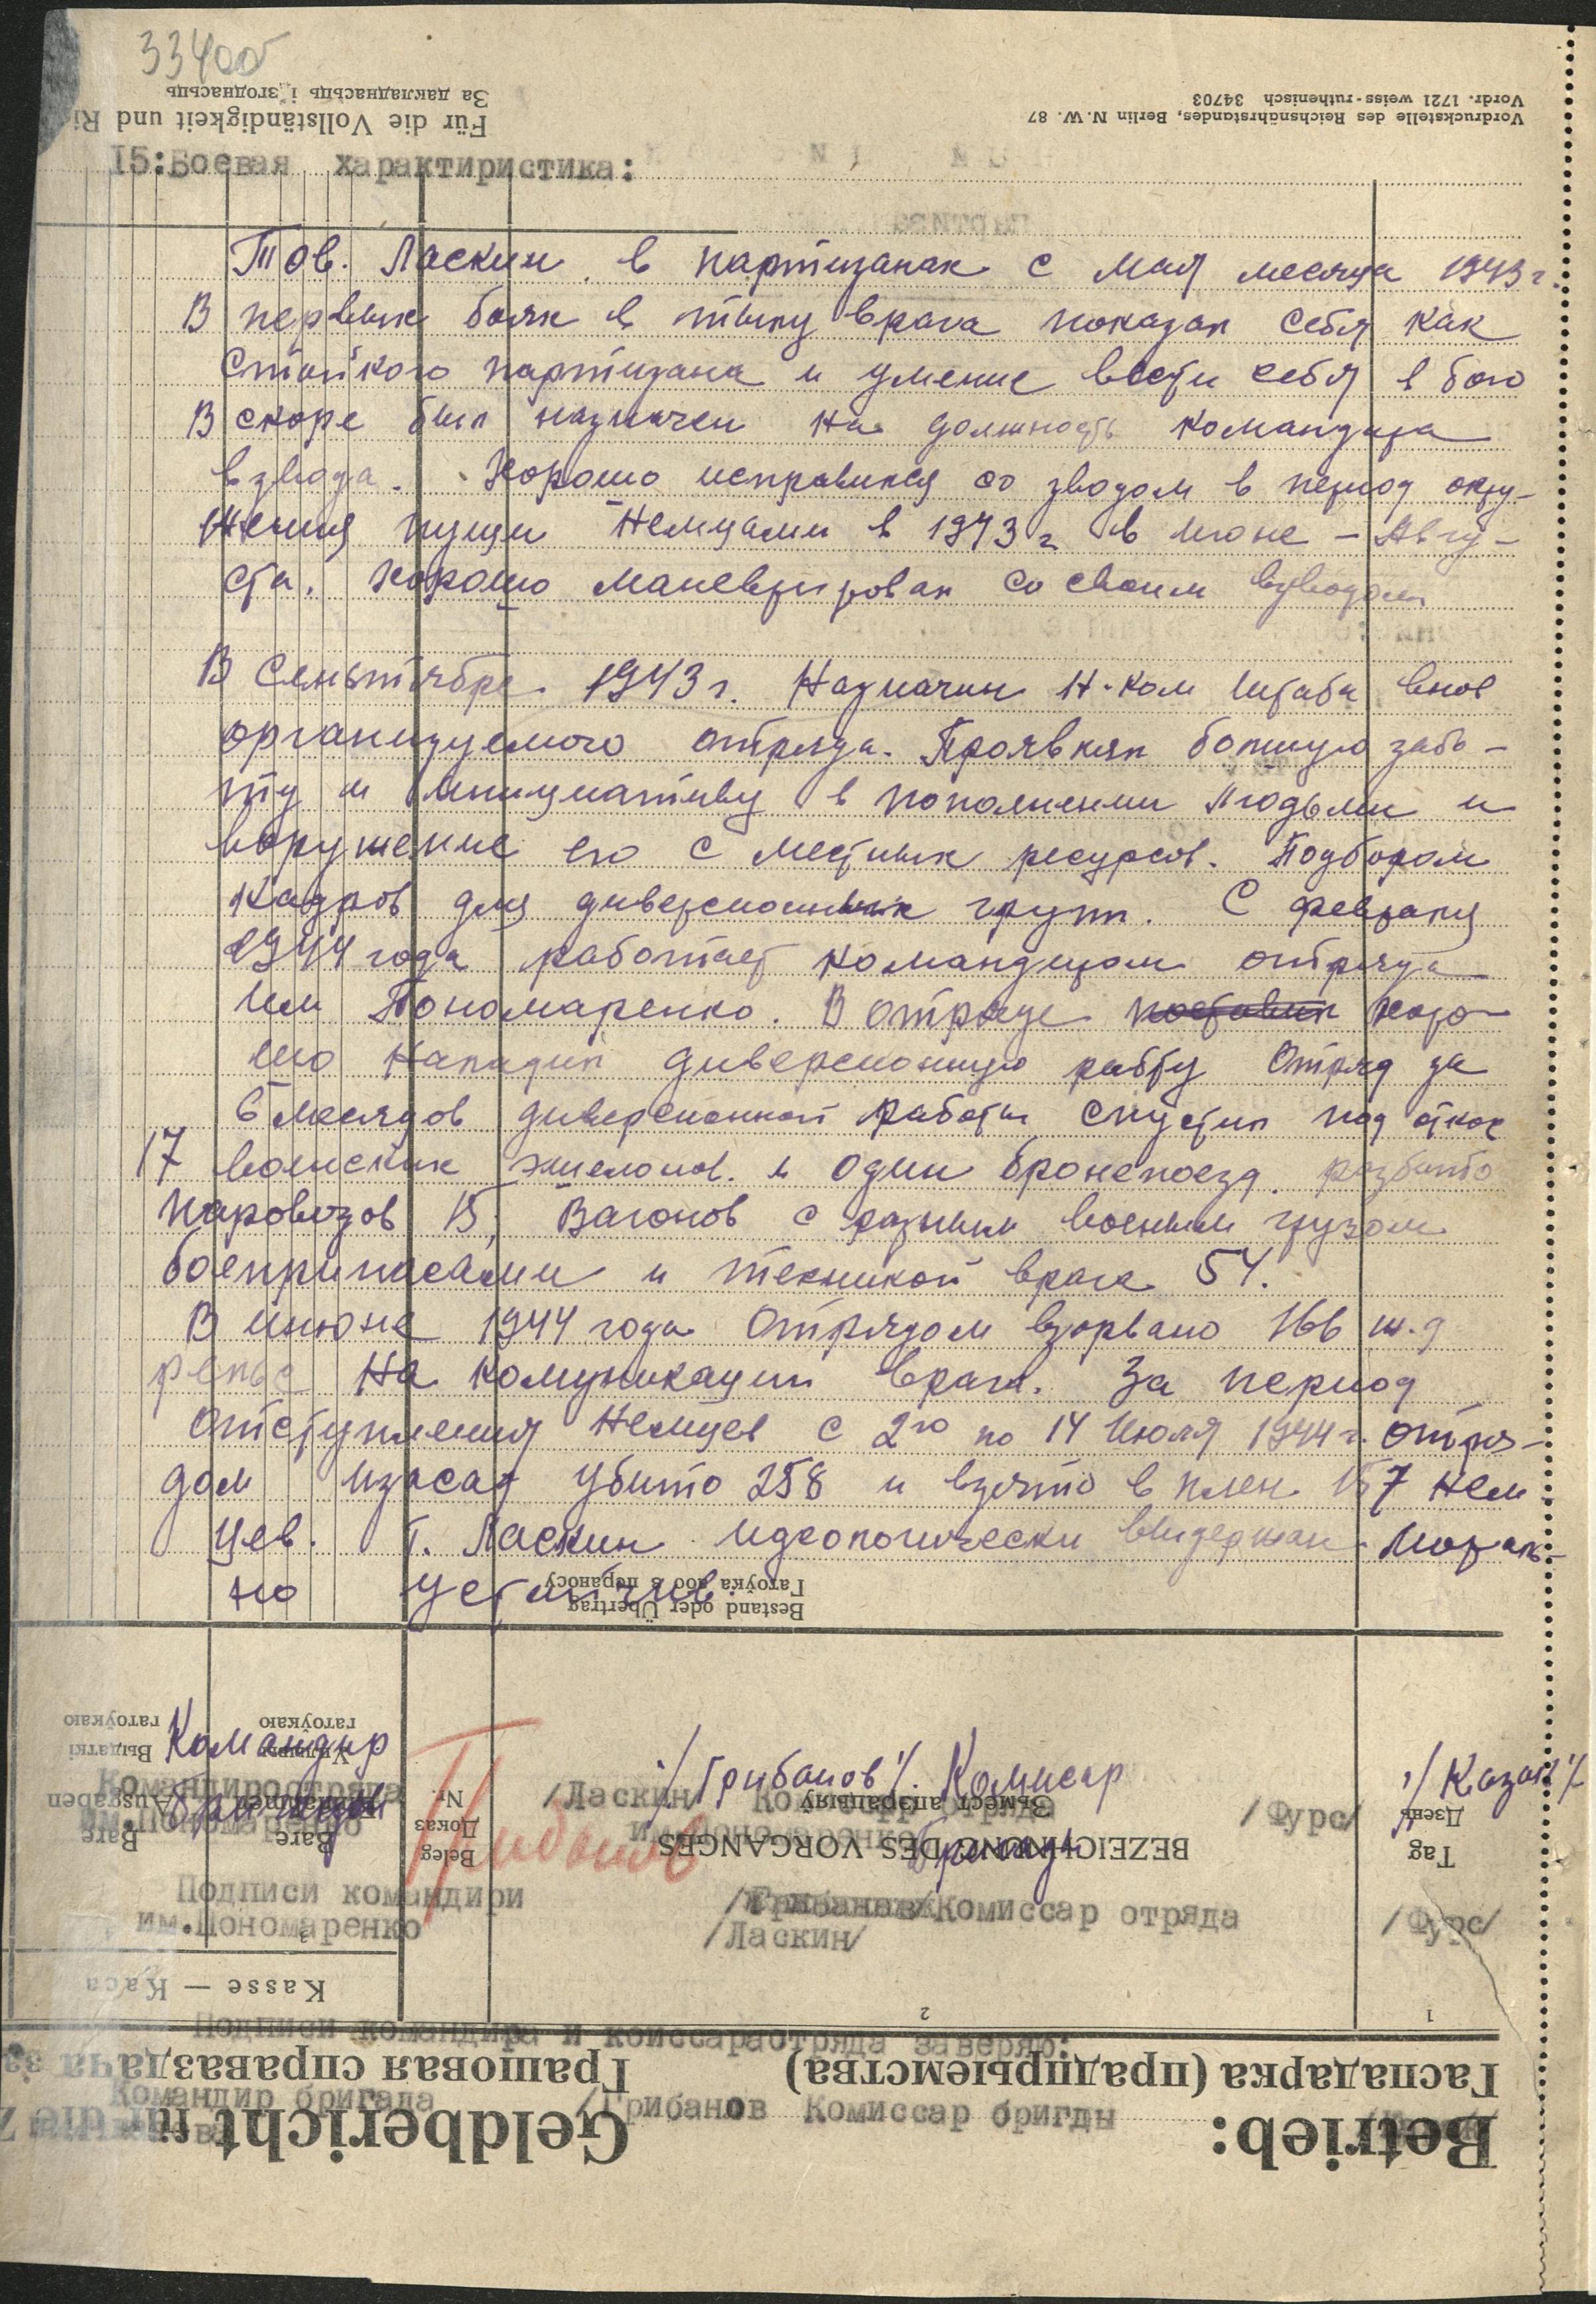 33400
Für die Vollständigkeit und Ri
За дакладнасьць і згоднасьць
Vordruckstelle des Reichsnährstandes, Berlin N. W. 87
Vordr. 1721 weiss-ruthenisch 34703
15:Боевая характиристика:
Тов. Ласкин в партизанах с мая месяца 1943 г.
В первых боях в тылу врага показал себя как
стойкого партизана и умение вести себя в бою
В скоре был назначен на должность командира
взвода. Хорошо исправился со зводом в период окру-
жения пущи немцами в 1943 г в июне - Авгу-
ста. хорошо маневрировал со своим взводом
В сеньтябре 1943 г. Назначин Н-ком штаба внов
организуемого отряда. Проявлял большую забо-
ту и инициативу в пополнении людьми и
воружение его с местных ресурсов. Подбором
кадров для диверсионных групп. С февраля
1944 года работает командиром отряда
им Пономаренко. В отряде поставил хоро-
шо наладил диверсионную работу Отряд за
6 месяцов диверсионной работы спустил под откос
17 воинских эшелонов. и один бронепоезд. разбито
паровозов 15, Вагонов с разным военым грузом
боеприпасами и техникой врага 54.
В июне 1944 года Отрядом взорвано 166 ж.д
рельс На комуникации врага. За период
отступления Немцев с 2го по 14 Июля 1944 г. отря-
дом убито 258 и взято в плен 157 нем-
цев. Т. Ласкин идеологически выдержан. Мораль-
но устойчив.
Bestand oder Übertrag
Гатоўка або з пераносу
Командир /Грибанов/. Комисар /Казак/
Бригады Бригады
Грибанов
Командиротряда /Ласкин/ Комиссар отряда /Фурс/
им.Пономаренко им.Пономаренко
Ausgaben Выдаткі гатоўкаю
Bare
Bare гатоўкаю
Beleg Nr.
Доказ
BEZEICHNUNG DES VORGANGES
Зьмест апэрацыяў
Tag
Дзень
Подписи командири /Грибанов/Комиссар отряда /Фурс/
им.Пономаренко /Ласкин/
Kasse — Каса
1
2
3
Подписи командира и коиссараотряда заверяю:
Грашовая справаздача за
Гаспадарка (прадпрыемства)
Командир бригада /Грибанов Комиссар бригды
Geldbericht für die Z
Betrieb: